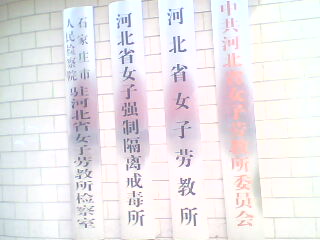 石家庄市
人民检察院
驻河北省女子劳教所检察室
河北省女子强制隔离戒毒所
河北省女子劳教所
中共河北省女子劳教所委员会